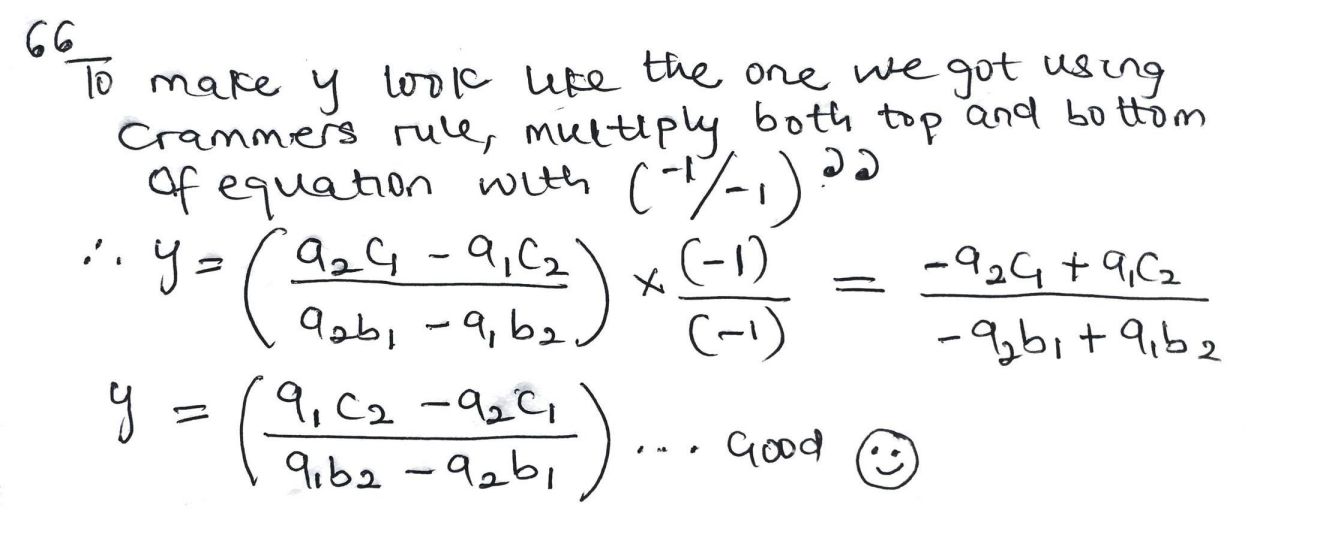 “To make y look like the one we got using
Crammers rule, multiply both top and bottom
of equation with (-1/-1)”
∴ y = ( (a₂c₁ - a₁c₂) / (a₂b₁ - a₁b₂) ) × (-1)/(-1) = (-a₂c₁ + a₁c₂) / (-a₂b₁ + a₁b₂)
y = ( (a₁c₂ - a₂c₁) / (a₁b₂ - a₂b₁) ) .... Good ☺